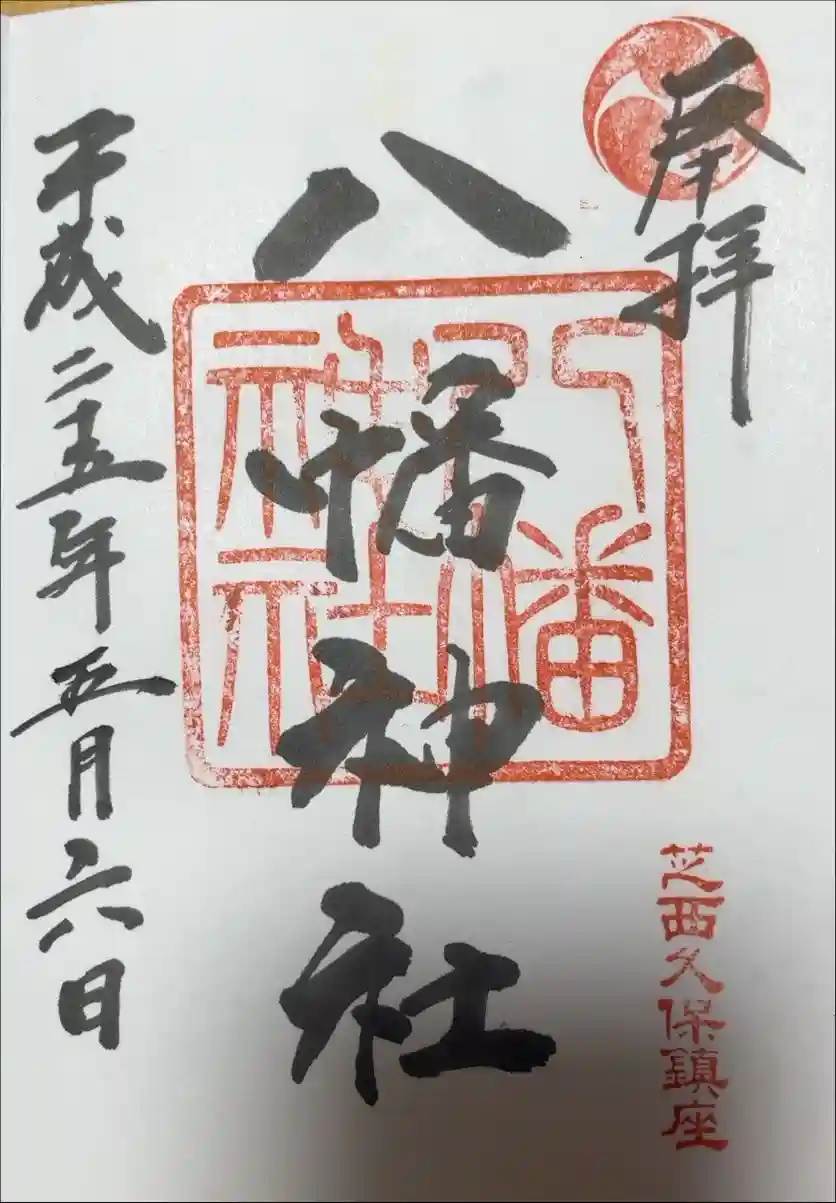 奉拝
芝西久保鎮座
八幡神社
八幡神社
平成二五年五月六日